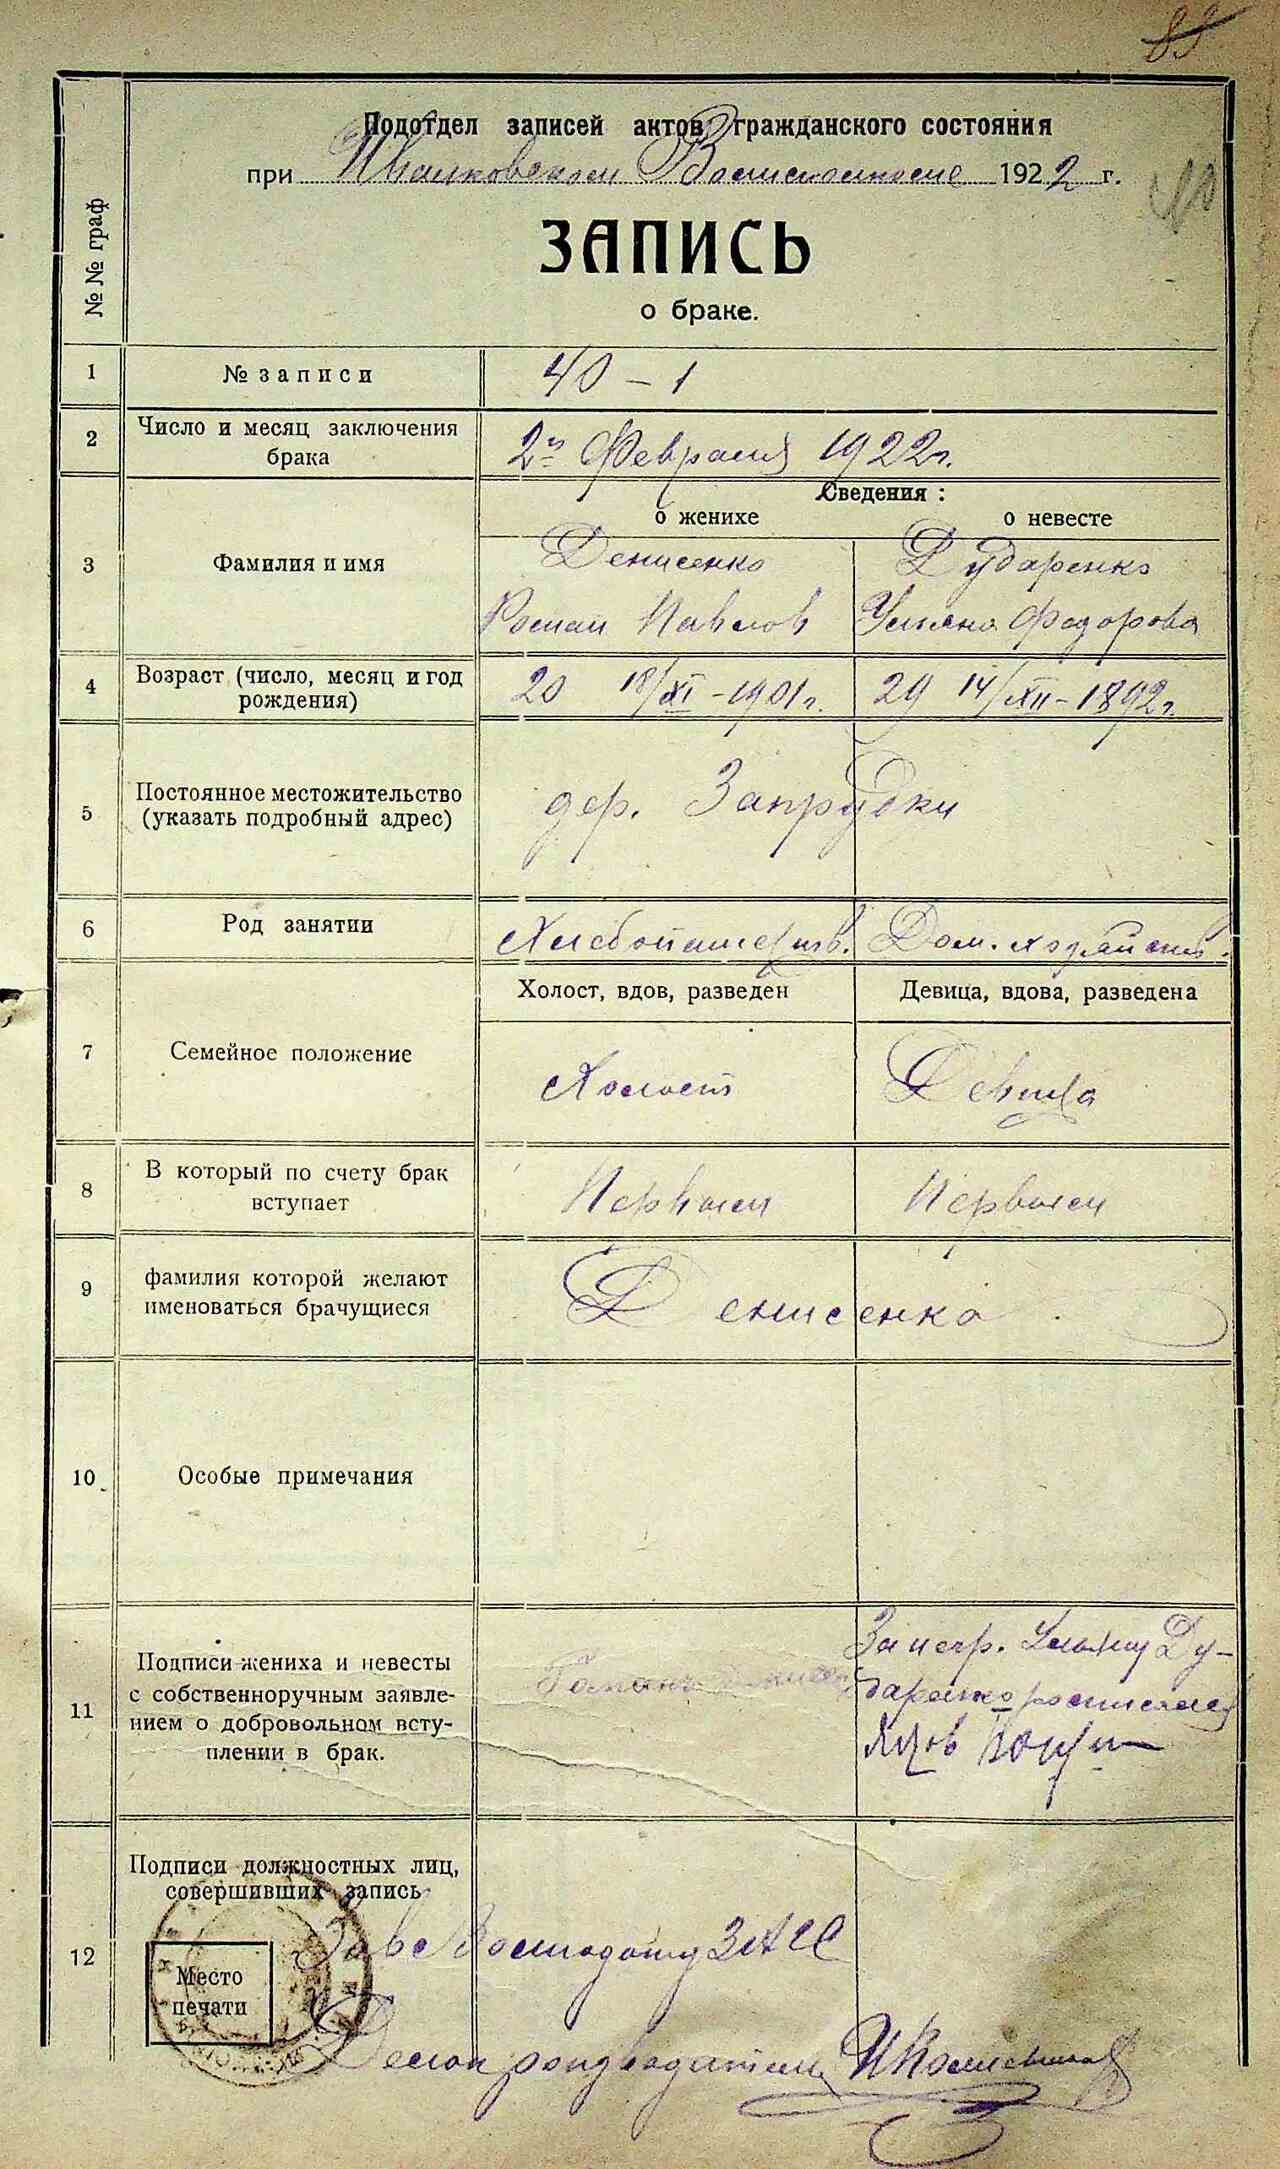 83
Подотдел записей актов гражданского состояния
при Иваньковском Волисполкоме 1922 г.
40
ЗАПИСЬ
о браке.
№ № граф
1 № записи 40 – 1
2 Число и месяц заключения брака 2го Февраля 1922 г.
Сведения :
о женихе о невесте
3 Фамилия и имя
Денисенко Дударенко
Роман Павлов Ульяна Федорова
4 Возраст (число, месяц и год рождения) 20 18/XI – 1901 г. 29 14/XII – 1892 г.
5 Постоянное местожительство (указать подробный адрес) дер. Запрудки
6 Род занятии Хлебопашеств. Дом. хозяйств.
Холост, вдов, разведен Девица, вдова, разведена
7 Семейное положение Холост Девица
8 В который по счету брак вступает Первый Первый
9 фамилия которой желают именоваться брачущиеся Денисенко
10 Особые примечания
11 Подписи жениха и невесты
с собственноручным заявле-
нием о добровольном всту-
плении в брак.
За негр. Ульяну Ду-
даренко росписался
12 Подписи должностных лиц,
совершивших запись
Место
печати
Зав. ЗАГС
Делопроизводитель